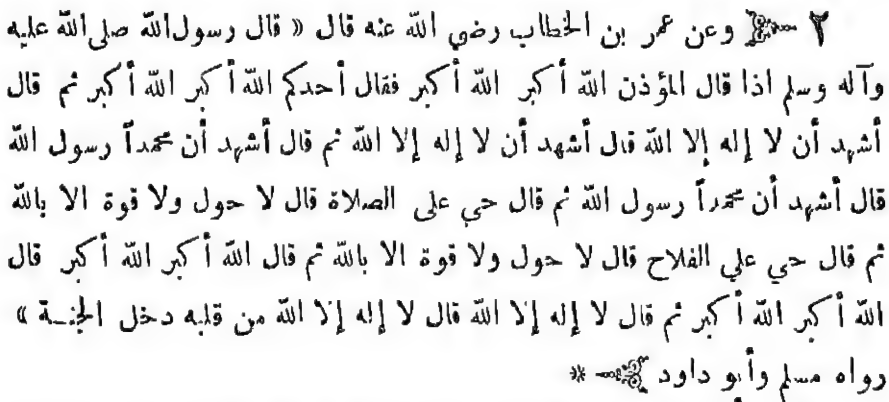 ٢ ﴿ وعن عمر بن الخطاب رضي الله عنه قال « قال رسول الله صلى الله عليه
وآله وسلم اذا قال المؤذن الله أكبر الله أكبر فقال أحدكم الله أكبر الله أكبر ثم قال
أشهد أن لا إله إلا الله قال أشهد أن لا إله إلا الله ثم قال أشهد أن محمداً رسول الله
قال أشهد أن محمداً رسول الله ثم قال حي على الصلاة قال لا حول ولا قوة الا بالله
ثم قال حي علي الفلاح قال لا حول ولا قوة الا بالله ثم قال الله أكبر الله أكبر قال
الله أكبر الله أكبر ثم قال لا إله إلا الله قال لا إله إلا الله من قلبه دخل الجنة »
رواه مسلم وأبو داود ﴾ *